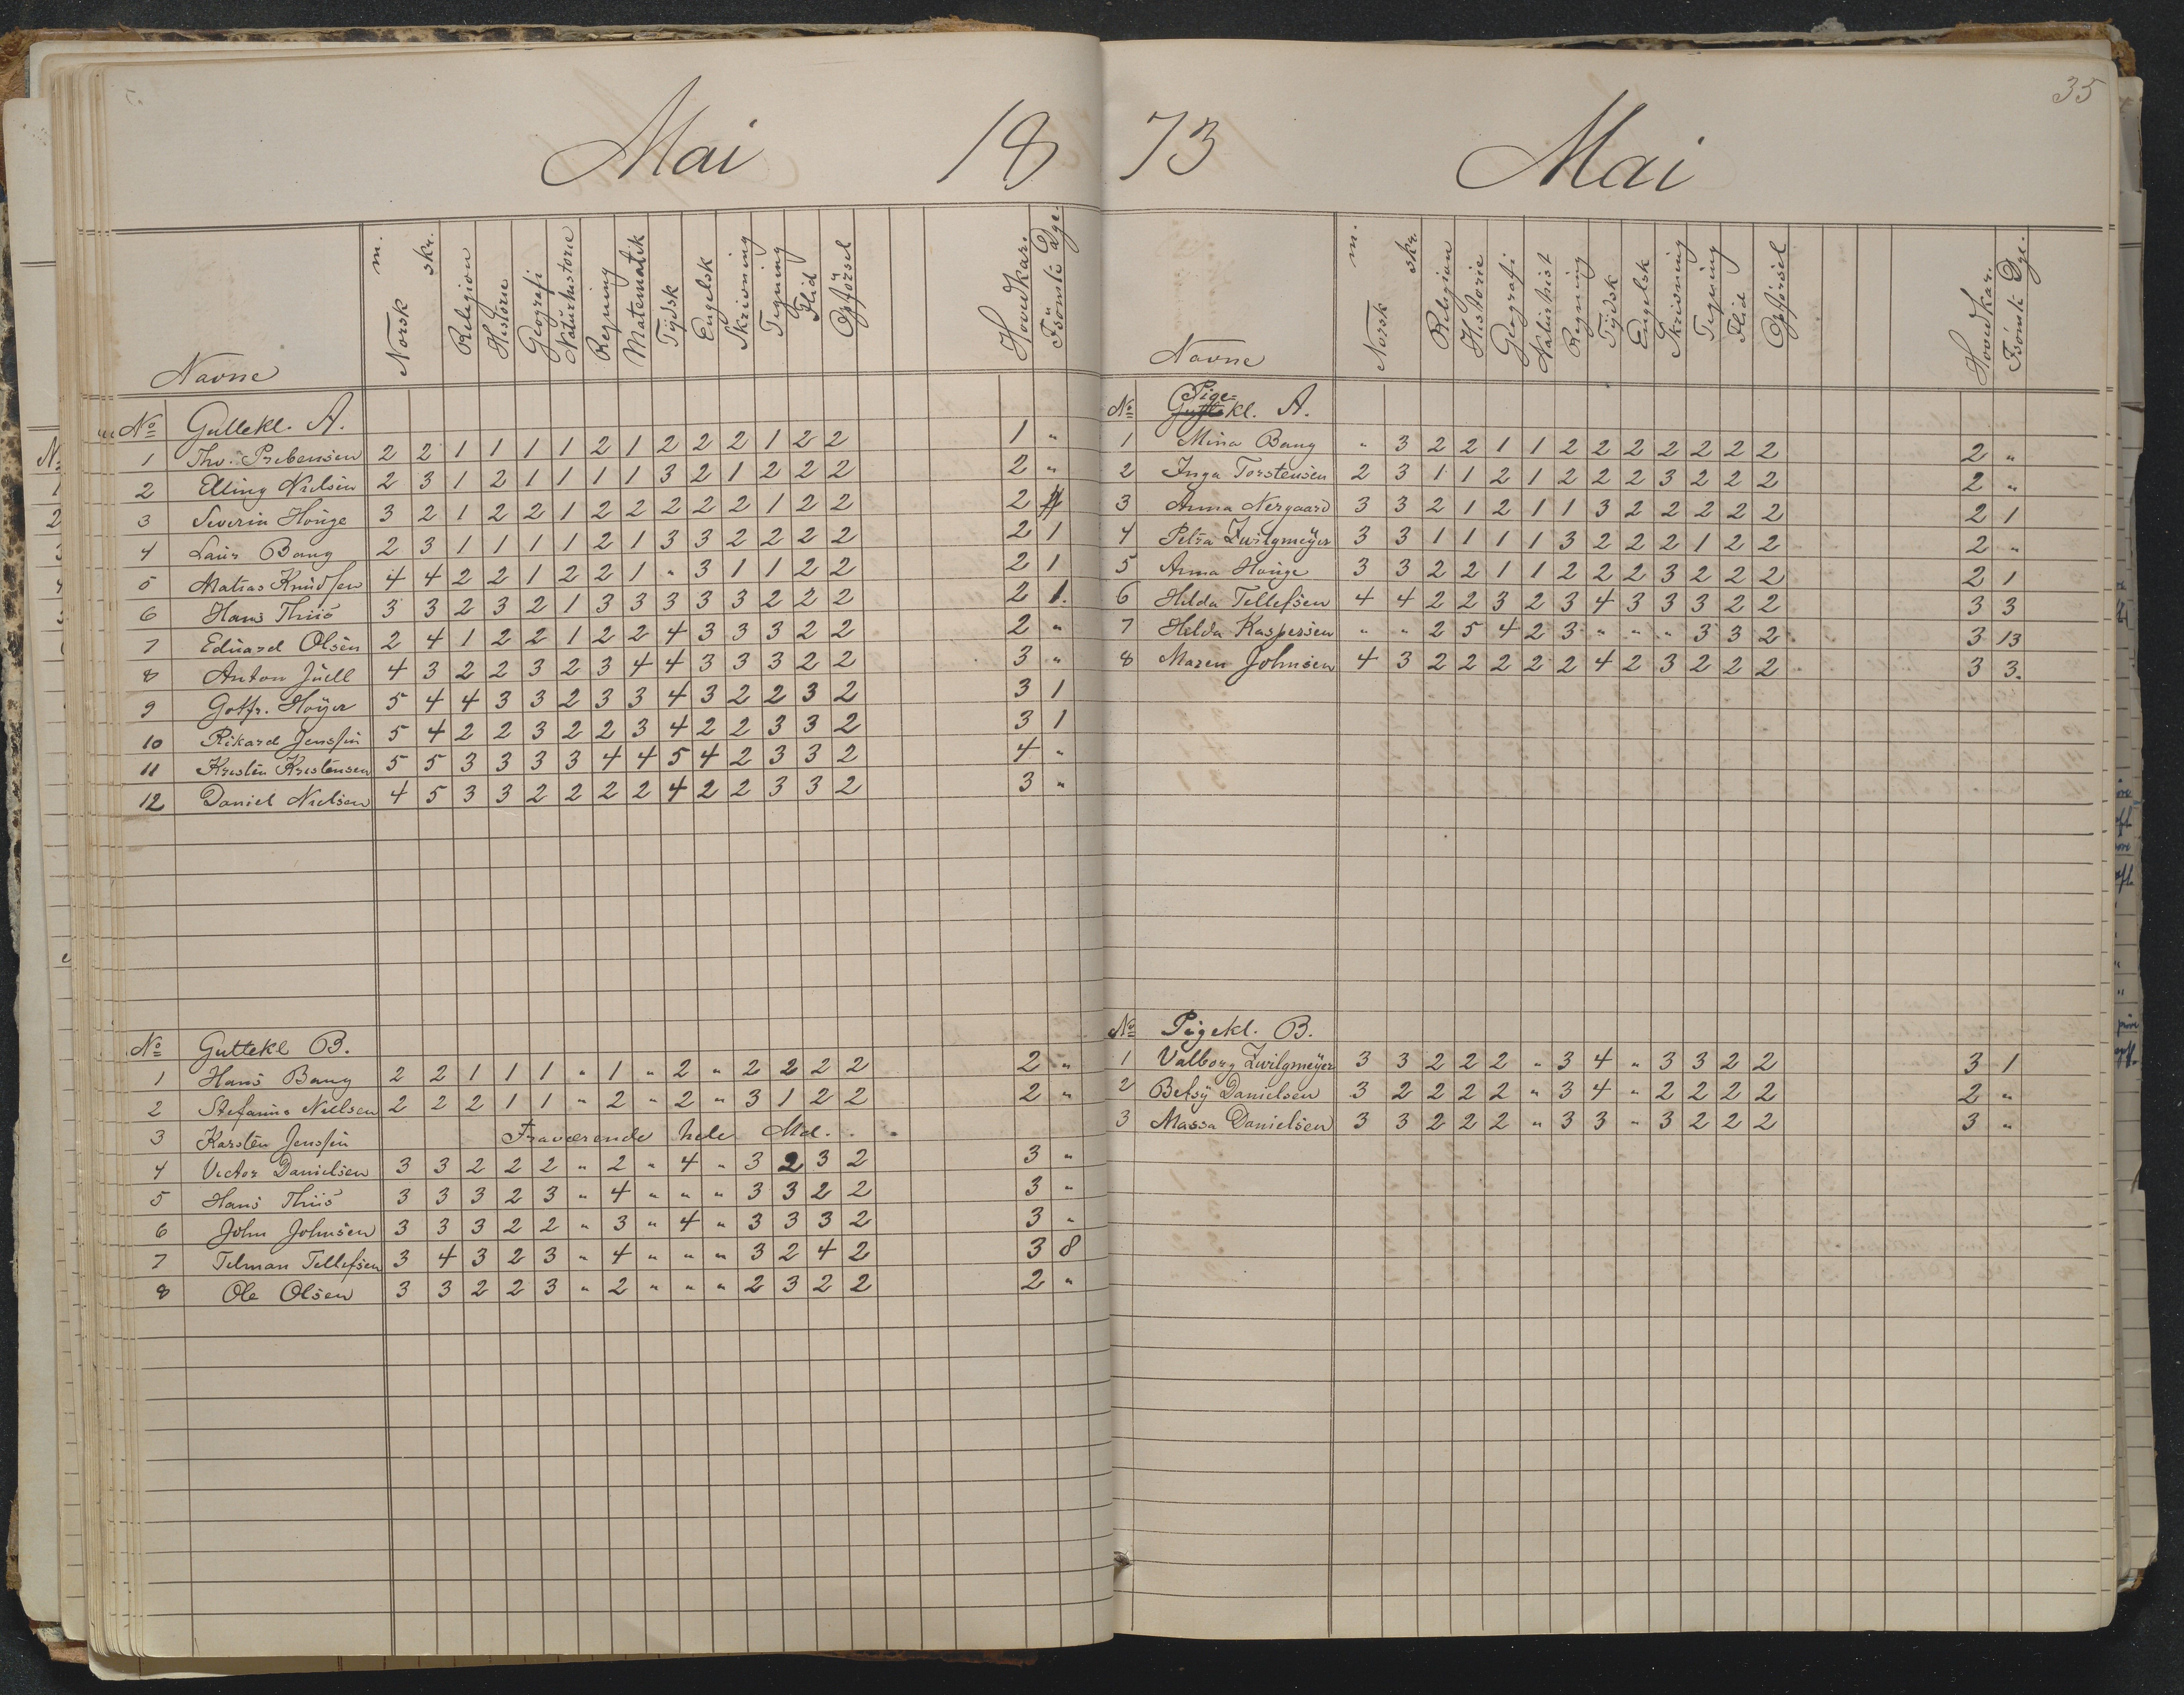 Mai 18
Navne Norsk m. skr. Religion Historie Geografi Naturhistorie Regning Matematik Tydsk Engelsk Skrivning Tegning Flid Opførsel Hovedkar. Fsömte Dge.
No Guttekl. A.
1 Thv. Prebensen 2 2 1 1 1 1 2 1 2 2 2 1 2 2 1 "
2 Elling Nielsen 2 3 1 2 1 1 1 1 3 2 1 2 2 2 2 "
3 Severin Houge 3 2 1 2 2 1 2 2 2 2 2 1 2 2 2
4 Laur Bang 2 3 1 1 1 1 2 1 3 3 2 2 2 2 2 1
5 Matias Knudsen 4 4 2 2 1 2 2 1 " 3 1 1 2 2 2 1
6 Hans Thiis 3 3 2 3 2 1 3 3 3 3 3 2 2 2 2 1.
7 Eduard Olsen 2 4 1 2 2 1 2 2 4 3 3 3 2 2 2 "
8 Anton Juell 4 3 2 2 3 2 3 4 4 3 3 3 2 2 3 "
9 Gotfr. Höyer 5 4 4 3 3 2 3 3 4 3 2 2 3 2 3 1
10 Rikard Jenssen 5 4 2 2 3 2 2 3 4 2 2 3 3 2 3 1
11 Kristen Kristensen 5 5 3 3 3 3 4 4 5 4 2 3 3 2 4 "
12 Daniel Nielsen 4 5 3 3 2 2 2 2 4 2 2 3 3 2 3 "
No Guttekl B.
1 Hans Bang 2 2 1 1 1 " 1 " 2 " 2 2 2 2 2 "
2 Stefanus Nielsen 2 2 2 1 1 " 2 " 2 " 3 1 2 2 2 "
3 Karsten Jenssen Fraværende hele Md.
4 Victor Danielsen 3 3 2 2 2 " 2 " 4 " 3 2 3 2 3 "
5 Hans Thiis 3 3 3 2 3 " 4 " " " 3 3 2 2 3 "
6 John Johnsen 3 3 3 2 2 " 3 " 4 " 3 3 3 2 3 "
7 Telman Tellefsen 3 4 3 2 3 " 4 " " " 3 2 4 2 3 8
8 Ole Olsen 3 3 2 2 3 " 2 " " " 2 3 2 2 2 "
73 Mai 35
Navne Norsk m. skr. Religion Historie Geografi Naturhist Regning Tydsk Engelsk Skrivning Tegning Flid Opförsel Hovedkar. Fsömte Dge.
No Pige= Guttekl. A.
1 Mina Bang " 3 2 2 1 1 2 2 2 2 2 2 2 2 "
2 Inga Torstensen 2 3 1 1 2 1 2 2 2 3 2 2 2 2 "
3 Anna Nergaard 3 3 2 1 2 1 1 3 2 2 2 2 2 2 1
4 Petra Zwilgmeyer 3 3 1 1 1 1 3 2 2 2 1 2 2 2 "
5 Anna Houge 3 3 2 2 1 1 2 2 2 3 2 2 2 2 1
6 Hilda Tellefsen 4 4 2 2 3 2 3 4 3 3 3 2 2 3 3
7 Helda Kaspersen " " 2 5 4 2 3 " " " 3 3 2 3 13
8 Maren Johnsen 4 3 2 2 2 2 2 4 2 3 2 2 2 3 3.
No Pigekl. B.
1 Valborg Zwilgmeyer 3 3 2 2 2 " 3 4 " 3 3 2 2 3 1
2 Betsy Danielsen 3 2 2 2 2 " 3 4 " 2 2 2 2 2 "
3 Massa Danielsen 3 3 2 2 2 " 3 3 " 3 2 2 2 3 "